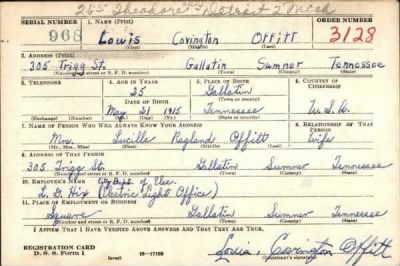 265 Theodore St Detroit 2 Mich
SERIAL NUMBER 1. NAME (Print) ORDER NUMBER
968 Lowis Covington Offitt 3128
(First) (Middle) (Last)
2. ADDRESS (Print)
305 Trigg St. Gallatin Sumner Tennessee
(Number and street or R. F. D. number) (Town) (County) (State)
3. TELEPHONE 4. AGE IN YEARS 5. PLACE OF BIRTH 6. COUNTRY OF CITIZENSHIP
25 Gallatin
DATE OF BIRTH (Town or county)
May 21 1915 Tennessee U.S.A.
(Exchange) (Number) (Mo.) (Day) (Yr.) (State or country)
7. NAME OF PERSON WHO WILL ALWAYS KNOW YOUR ADDRESS 8. RELATIONSHIP OF THAT PERSON
Mrs. Lucille Ragland Offitt Wife
(Mr., Mrs., Miss) (First) (Middle) (Last)
9. ADDRESS OF THAT PERSON
305 Trigg St. Gallatin Sumner Tennessee
(Number and street or R. F. D. number) (Town) (County) (State)
10. EMPLOYER'S NAME City Dept. of Elec.
L. G. Hix (Electric Lights Office)
11. PLACE OF EMPLOYMENT OR BUSINESS
Square Gallatin Sumner Tennessee
(Number and street or R. F. D. number) (Town) (County) (State)
I AFFIRM THAT I HAVE VERIFIED ABOVE ANSWERS AND THAT THEY ARE TRUE.
REGISTRATION CARD
D. S. S. Form 1 (over) 16—17105 Louis Covington Offitt
(Registrant's signature)